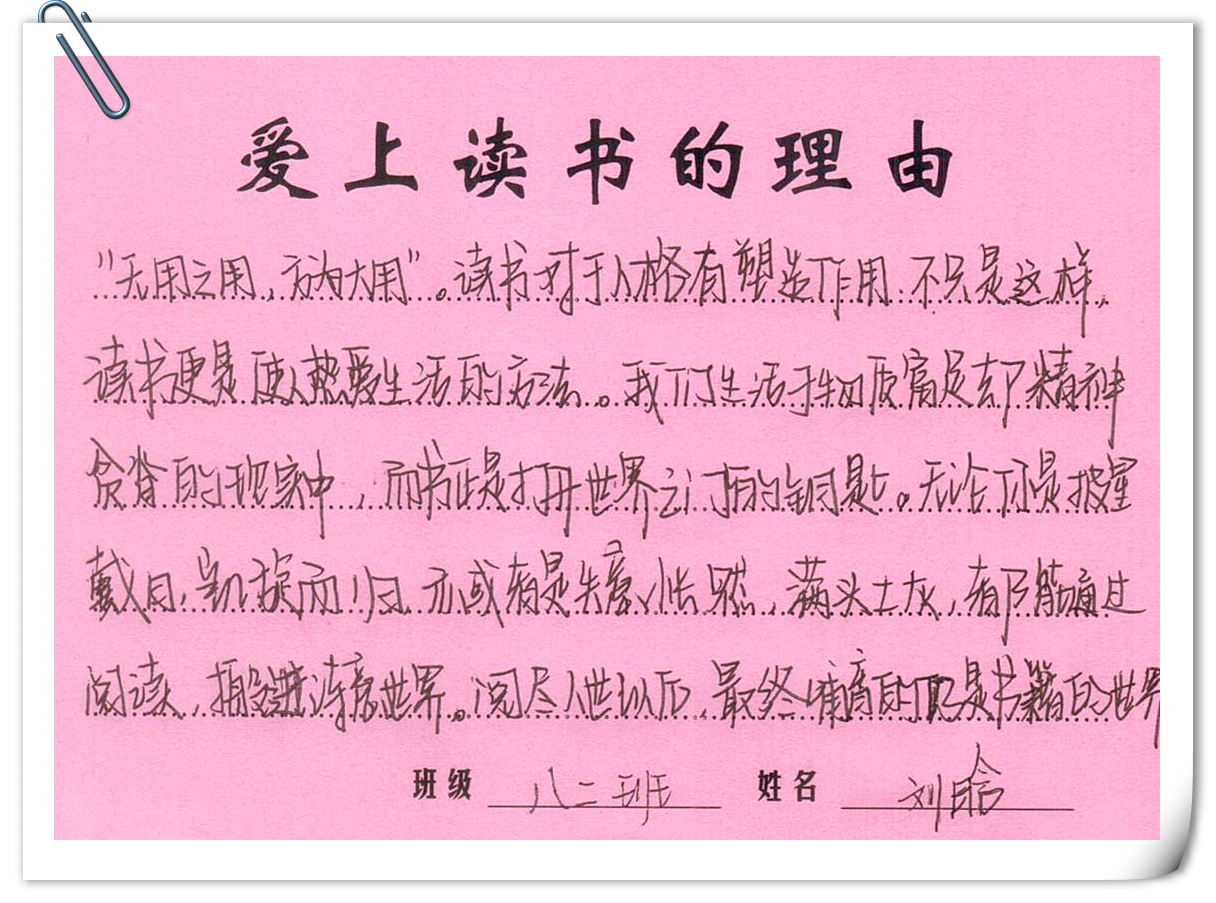 爱上读书的理由
“无用之用，方为大用”。读书对于人格有塑造作用.不只是这样，
读书更是使人热爱生活的方法。我们生活于物质富足却精神
贫瘠的现实中，而书正是打开世界之门的钥匙。无论你是披星
戴月，凯旋而归.亦或者是失意怅然，满头土灰，都能通过
阅读，投进诗意世界。阅尽人世以后，最终情商的只是书籍的世界
班级 八二班 姓名 刘晗